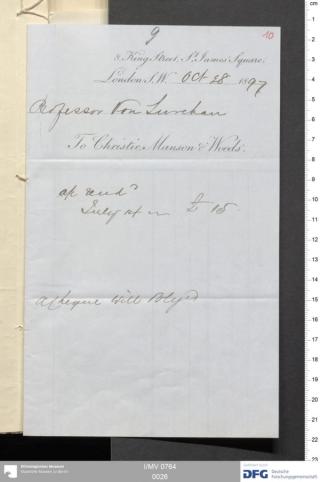 9
10
8, King Street, St James' Square,
London S.W. Oct 28 1897
Professor Von Luschan
To Christie, Manson & Woods.
July 14 £ 15
A Cheque will
Ethnologisches Museum
Staatliche Museen zu Berlin
I/MV 0764
0026
DFG
Deutsche
Forschungsgemeinschaft
cm
1
2
3
4
5
6
7
8
9
10
11
12
13
14
15
16
17
18
19
20
21
22
23